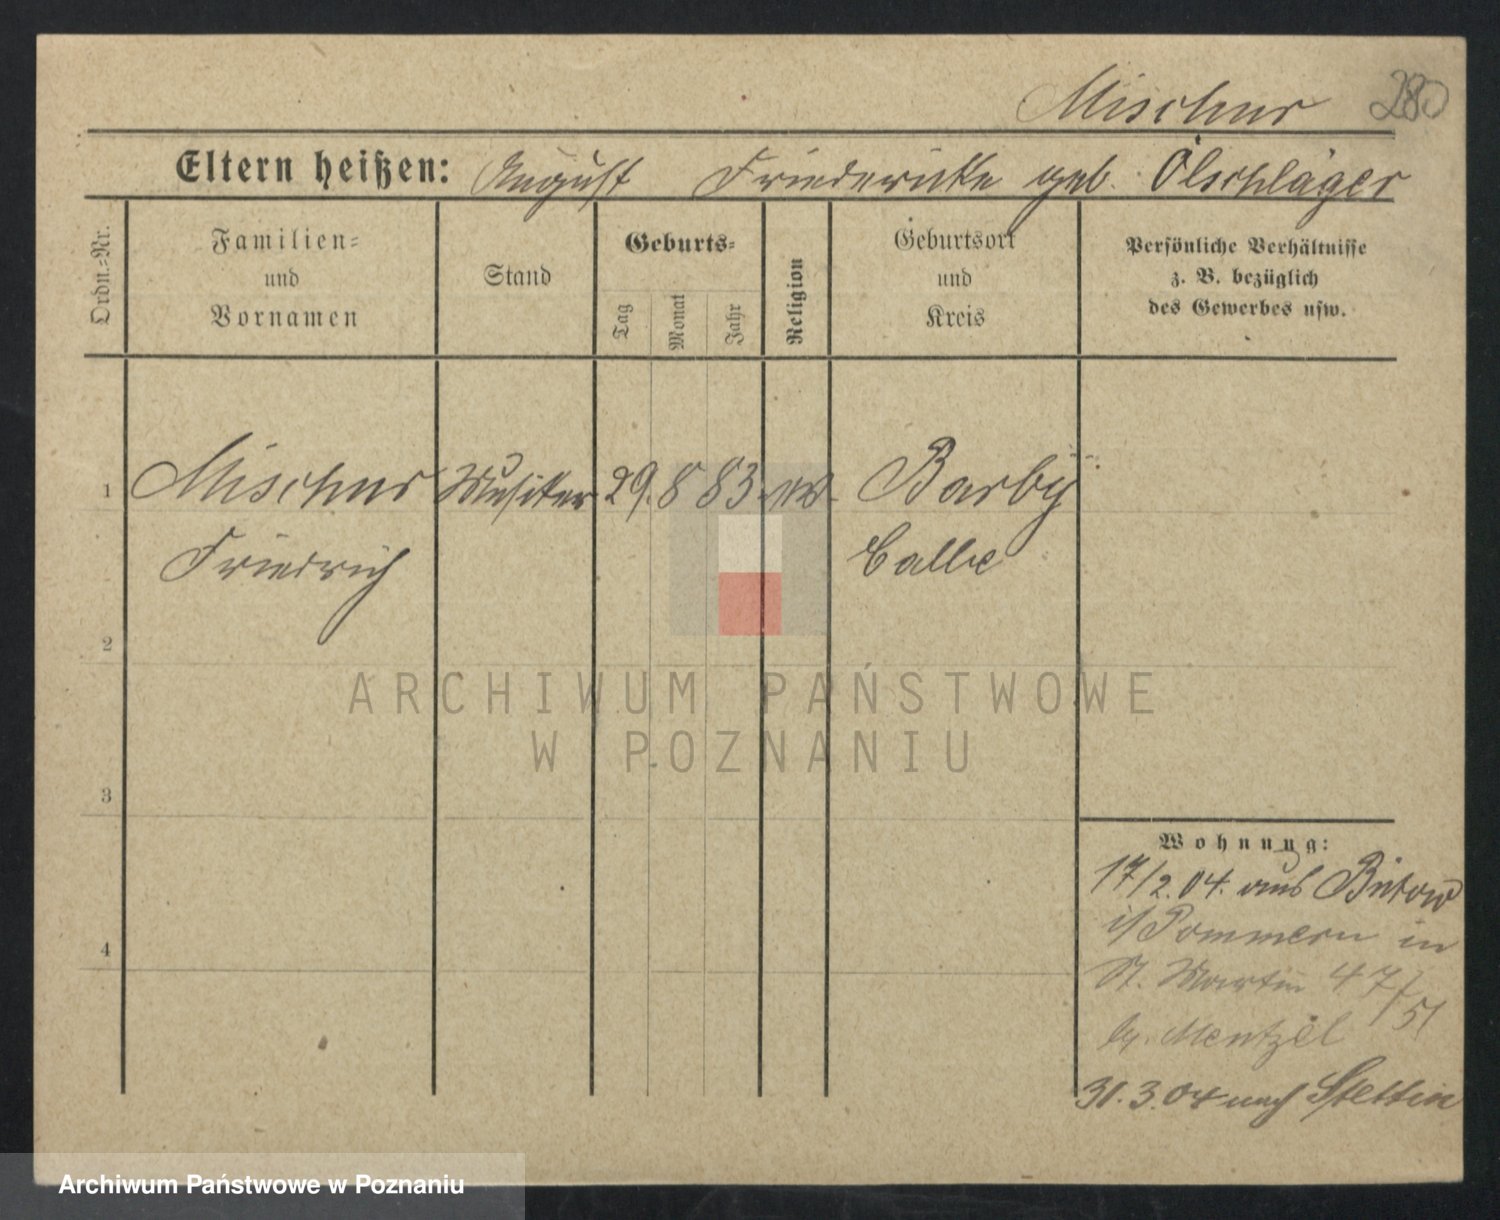 Mischur 280
Eltern heißen: August Friedericke geb. Ölschläger
Ordn.-Nr.
Familien-
und
Vornamen
Stand
Geburts-
Tag
Monat
Jahr
Religion
Geburtsort
und
Kreis
Persönliche Verhältnisse
z. B. bezüglich
des Gewerbes usw.
1 Mischur Musiker 29. 8 83. Barby
Friedrich Calbe
2
3
4
Wohnung:
17/2.04. aus Bütow
i/Pommern in
St. Martin 47/51
Mentzel
31.3.04 nach Stettin
ARCHIWUM PAŃSTWOWE
W POZNANIU
Archiwum Państwowe w Poznaniu